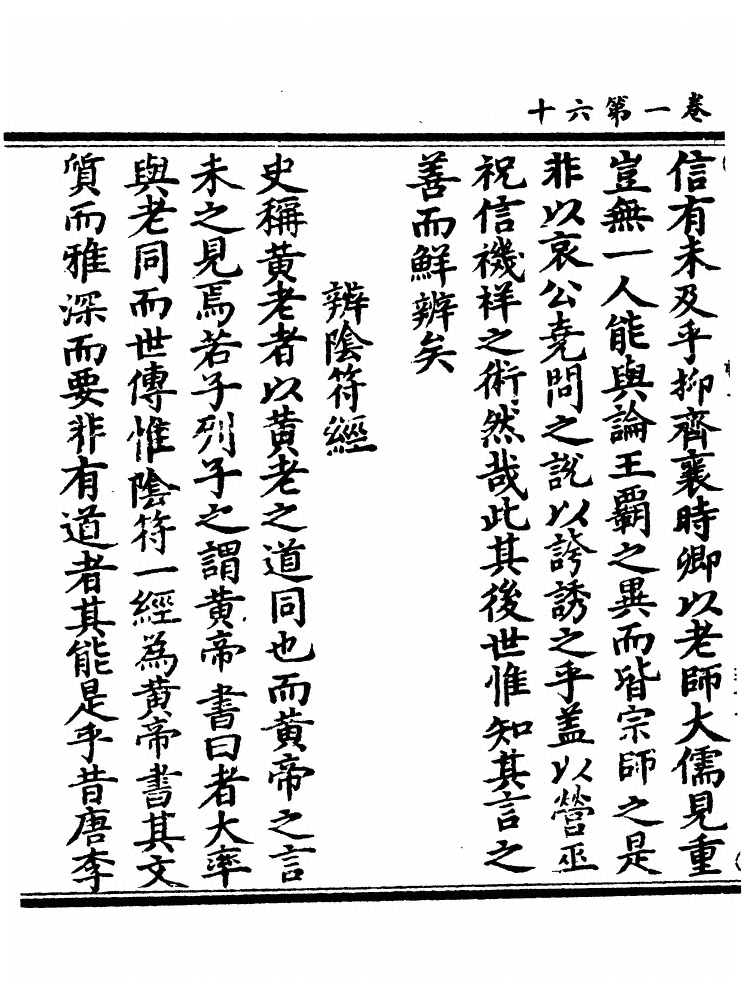 卷一第六十
信有未及乎抑齊襄時卿以老師大儒見重
豈無一人能與論王霸之異而皆宗師之是
非以哀公堯問之說以誇誘之乎蓋以營巫
祝信禨祥之術然哉此其後世惟知其言之
善而鮮辨矣
辨陰符經
史稱黃老者以黃老之道同也而黃帝之言
未之見焉若子列子之謂黃帝書曰者大率
與老同而世傳惟陰符一經為黃帝書其文
質而雅深而要非有道者其能是乎昔唐李